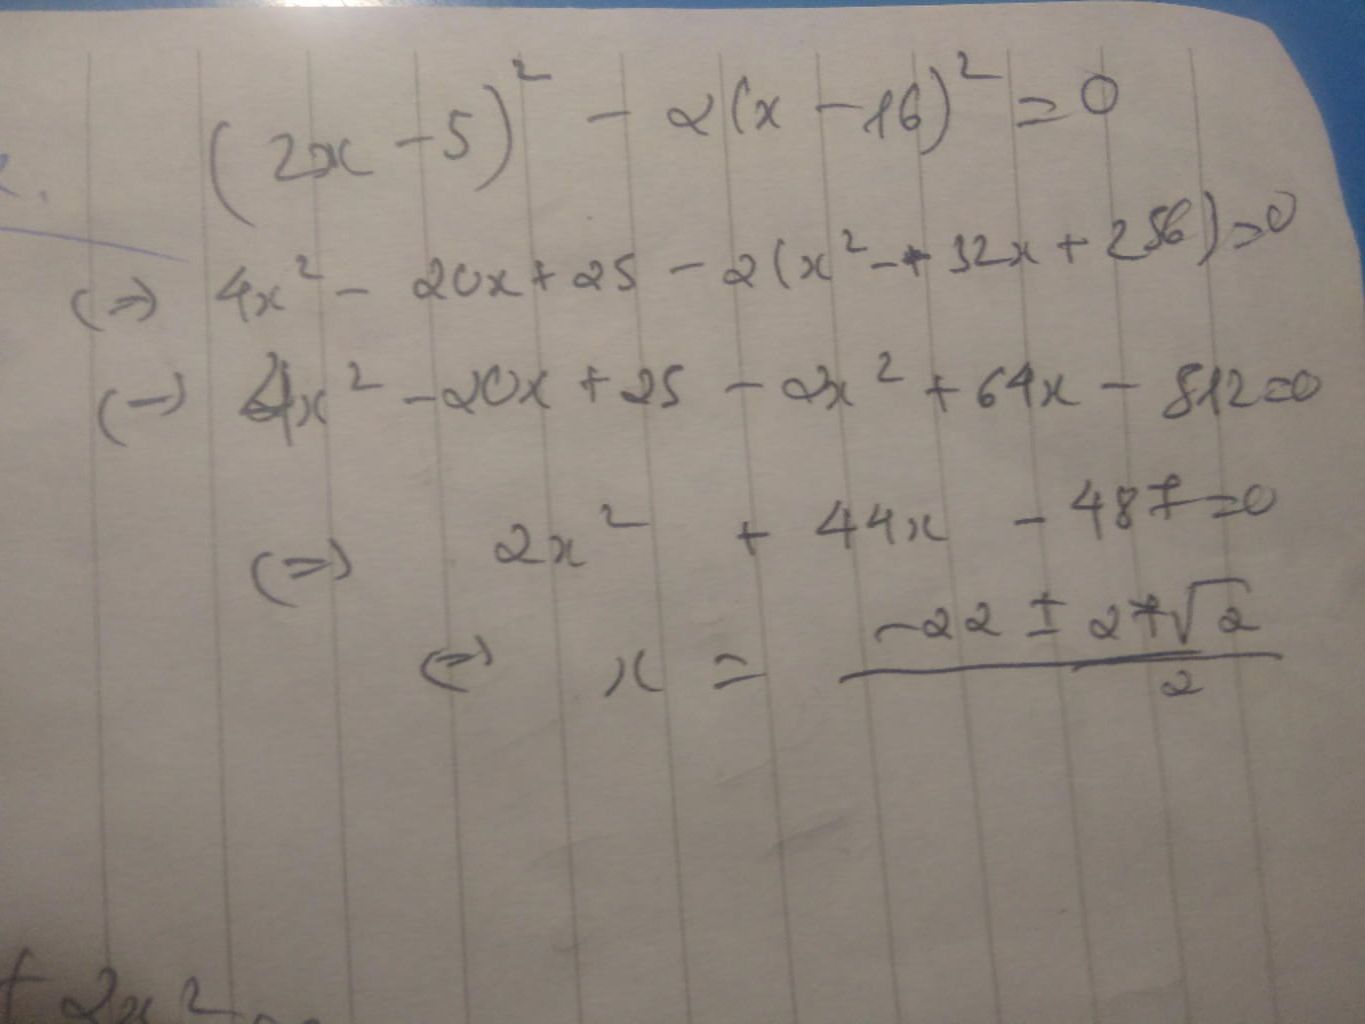 (2x - 5)² - 2(x - 16)² = 0
(=) 4x² - 20x + 25 - 2(x² - 32x + 256) = 0
(-) 4x² - 20x + 25 - 2x² + 64x - 512 = 0
(=) 2x² + 44x - 487 = 0
(=) x = (-22 ± 27√2) / 2
+ 2x²